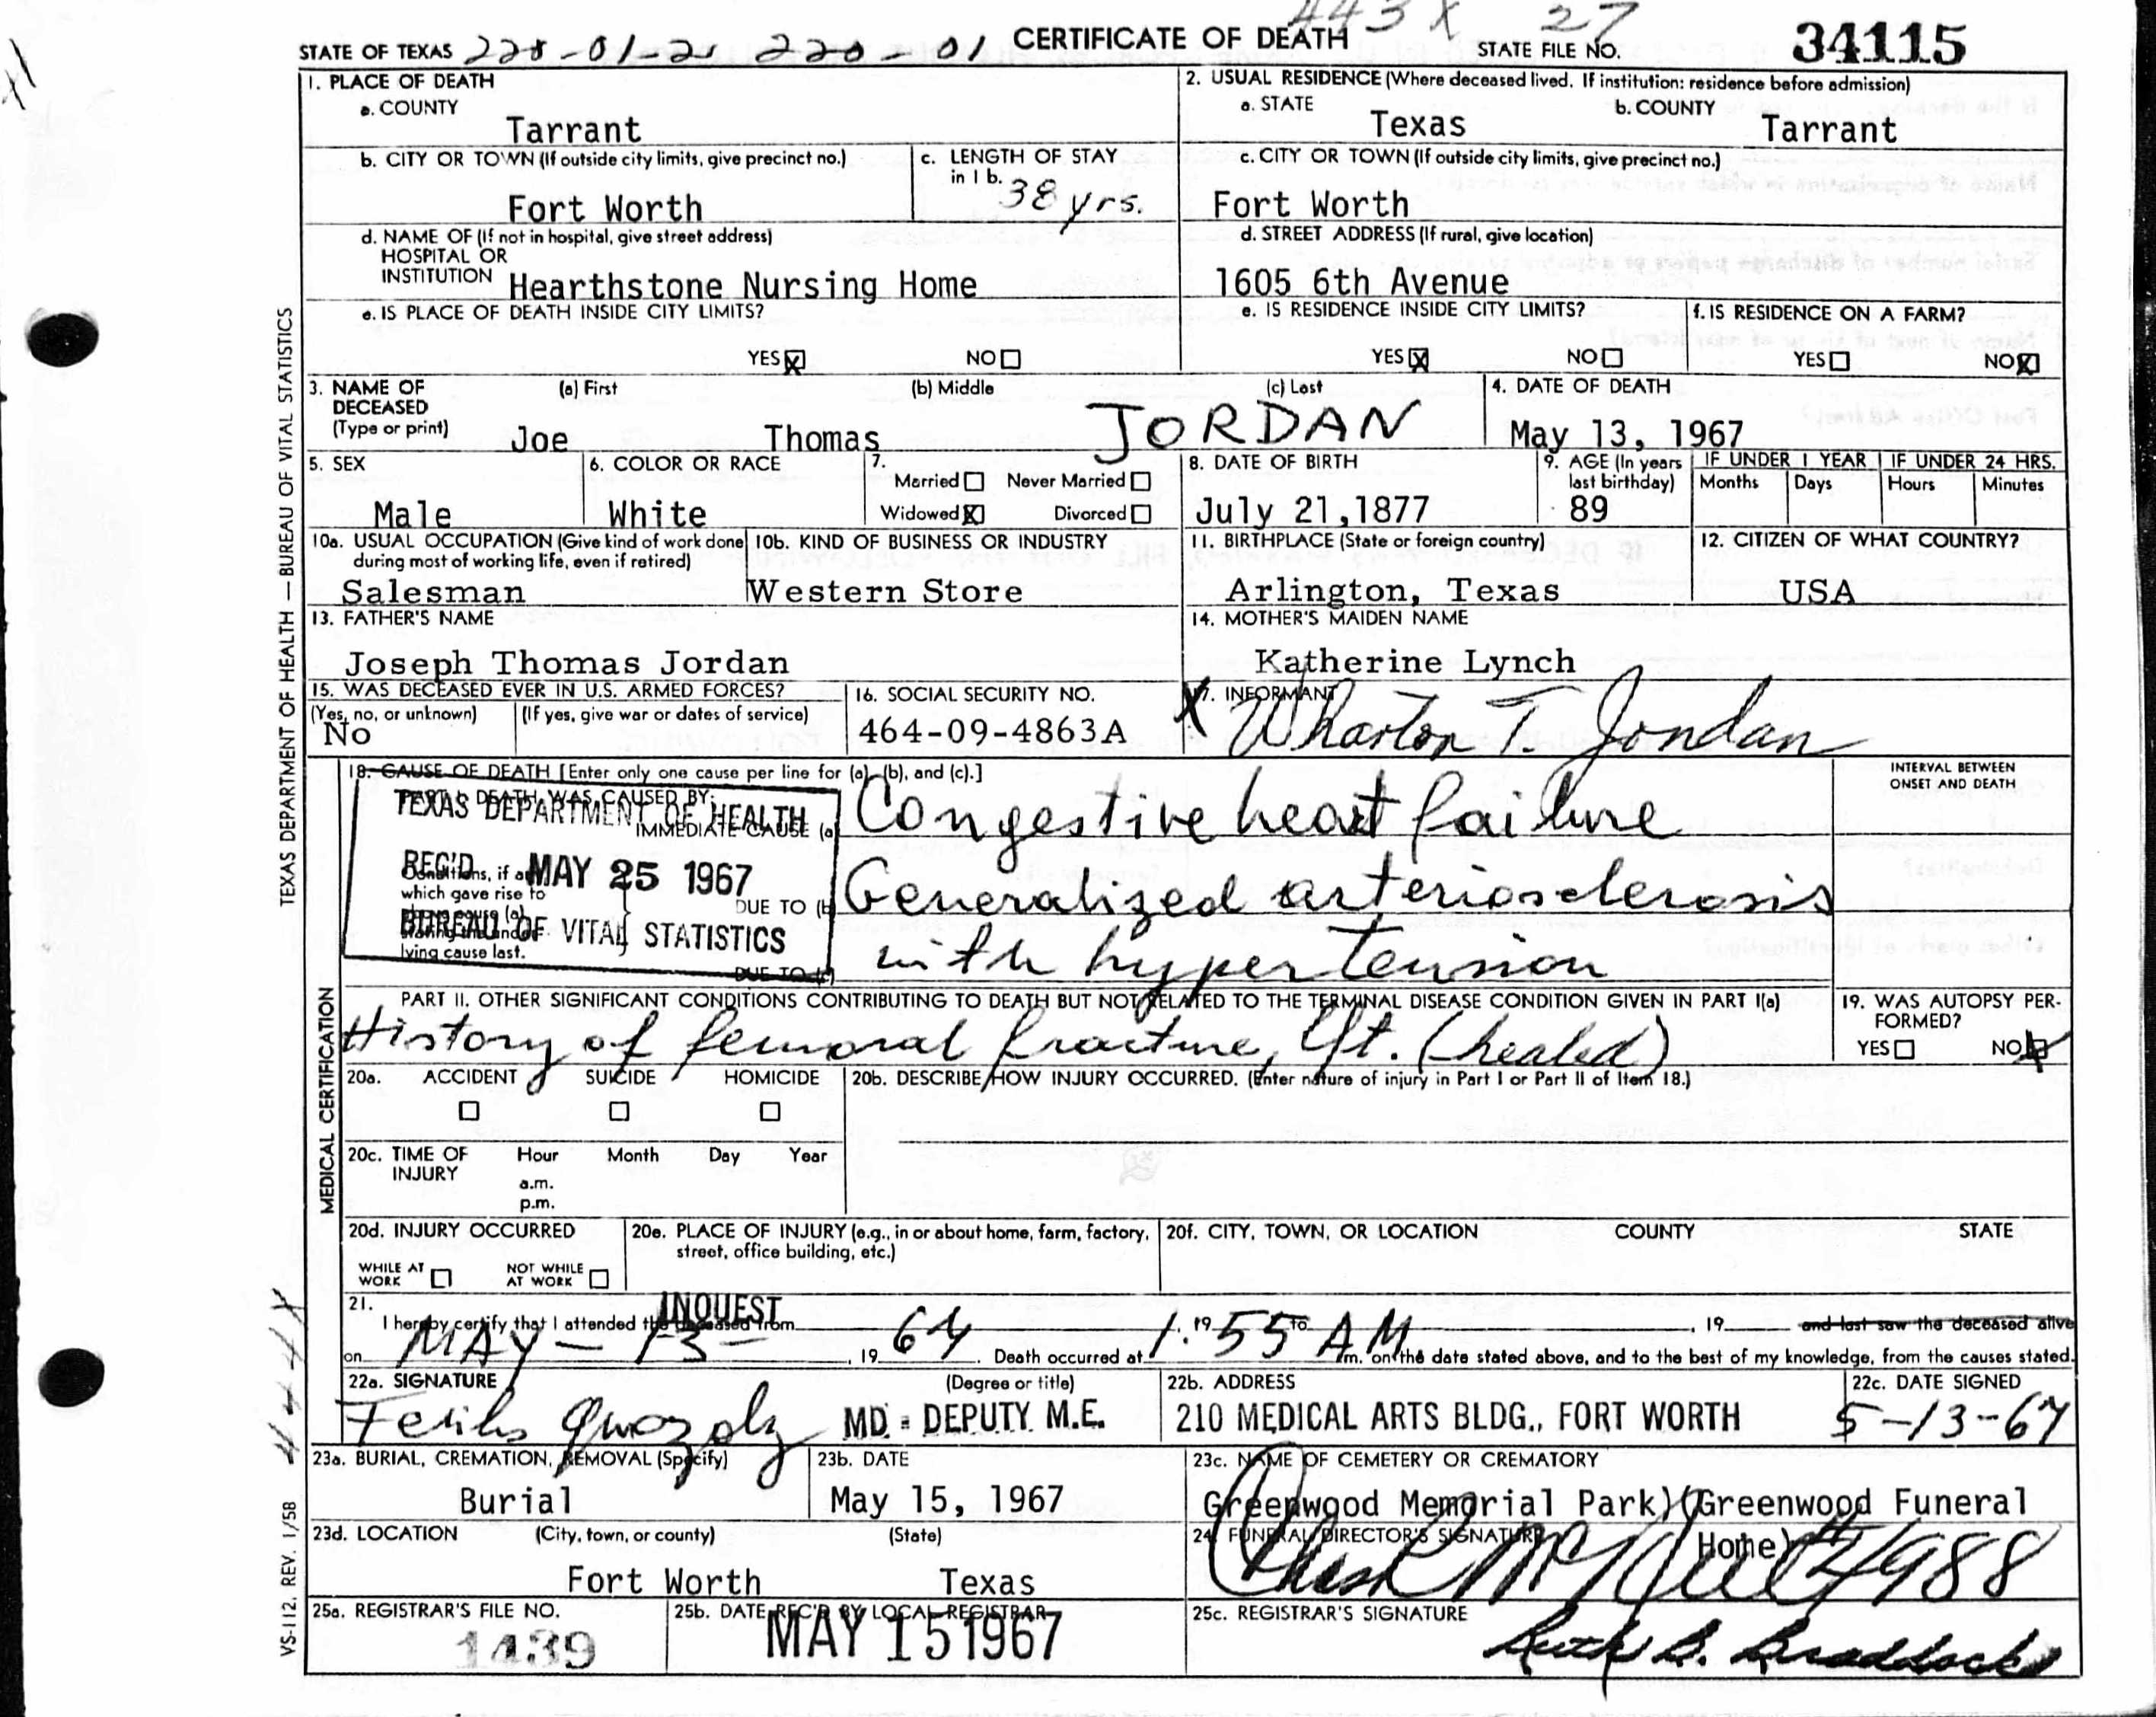 443 X 27
STATE OF TEXAS 220-01-2 220-01 CERTIFICATE OF DEATH STATE FILE NO. 34115
1. PLACE OF DEATH
a. COUNTY
Tarrant
2. USUAL RESIDENCE (Where deceased lived. If institution: residence before admission)
a. STATE
Texas
b. COUNTY
Tarrant
b. CITY OR TOWN (If outside city limits, give precinct no.)
Fort Worth
c. LENGTH OF STAY
in 1 b.
38 yrs.
c. CITY OR TOWN (If outside city limits, give precinct no.)
Fort Worth
d. NAME OF (If not in hospital, give street address)
HOSPITAL OR
INSTITUTION Hearthstone Nursing Home
d. STREET ADDRESS (If rural, give location)
1605 6th Avenue
e. IS PLACE OF DEATH INSIDE CITY LIMITS?
YES X NO
e. IS RESIDENCE INSIDE CITY LIMITS?
YES X NO
f. IS RESIDENCE ON A FARM?
YES NO X
3. NAME OF
DECEASED
(Type or print)
(a) First
Joe
(b) Middle
Thomas
(c) Last
JORDAN
4. DATE OF DEATH
May 13, 1967
5. SEX
Male
6. COLOR OR RACE
White
7.
Married Never Married
Widowed X Divorced
8. DATE OF BIRTH
July 21,1877
9. AGE (In years
last birthday)
89
IF UNDER 1 YEAR
Months Days
IF UNDER 24 HRS.
Hours Minutes
10a. USUAL OCCUPATION (Give kind of work done
during most of working life, even if retired)
Salesman
10b. KIND OF BUSINESS OR INDUSTRY
Western Store
11. BIRTHPLACE (State or foreign country)
Arlington, Texas
12. CITIZEN OF WHAT COUNTRY?
USA
13. FATHER'S NAME
Joseph Thomas Jordan
14. MOTHER'S MAIDEN NAME
Katherine Lynch
15. WAS DECEASED EVER IN U.S. ARMED FORCES?
(Yes, no, or unknown) (If yes, give war or dates of service)
No
16. SOCIAL SECURITY NO.
464-09-4863A
17. INFORMANT
X Wharton T Jordan
18. CAUSE OF DEATH [Enter only one cause per line for (a), (b), and (c).]
INTERVAL BETWEEN
ONSET AND DEATH
PART I. DEATH WAS CAUSED BY:
IMMEDIATE CAUSE (a) Congestive heart failure
Conditions, if any
which gave rise to
above cause (a)
stating the under-
lying cause last.
DUE TO (b) Generalized arteriosclerosis
DUE TO (c) with hypertension
TEXAS DEPARTMENT OF HEALTH
REC'D MAY 25 1967
BUREAU OF VITAL STATISTICS
PART II. OTHER SIGNIFICANT CONDITIONS CONTRIBUTING TO DEATH BUT NOT RELATED TO THE TERMINAL DISEASE CONDITION GIVEN IN PART I(a)
History of femoral fracture, lft. (healed)
19. WAS AUTOPSY PER-
FORMED?
YES NO X
20a. ACCIDENT SUICIDE HOMICIDE
20b. DESCRIBE HOW INJURY OCCURRED. (Enter nature of injury in Part I or Part II of Item 18.)
20c. TIME OF
INJURY
Hour Month Day Year
a.m.
p.m.
20d. INJURY OCCURRED
WHILE AT
WORK
NOT WHILE
AT WORK
20e. PLACE OF INJURY (e.g., in or about home, farm, factory,
street, office building, etc.)
20f. CITY, TOWN, OR LOCATION COUNTY STATE
21.
INQUEST
I hereby certify that I attended the deceased from , 19 to , 19 and last saw the deceased alive
on MAY - 13 - , 19 67. Death occurred at 1:55 AM m. on the date stated above, and to the best of my knowledge, from the causes stated.
22a. SIGNATURE (Degree or title)
MD - DEPUTY M.E.
22b. ADDRESS
210 MEDICAL ARTS BLDG., FORT WORTH
22c. DATE SIGNED
5-13-67
23a. BURIAL, CREMATION, REMOVAL (Specify)
Burial
23b. DATE
May 15, 1967
23c. NAME OF CEMETERY OR CREMATORY
Greenwood Memorial Park)(Greenwood Funeral
Home)
23d. LOCATION (City, town, or county) (State)
Fort Worth Texas
24. FUNERAL DIRECTOR'S SIGNATURE
#4988
25a. REGISTRAR'S FILE NO.
1439
25b. DATE REC'D BY LOCAL REGISTRAR
MAY 15 1967
25c. REGISTRAR'S SIGNATURE
Ruth B. Braddock
TEXAS DEPARTMENT OF HEALTH — BUREAU OF VITAL STATISTICS
MEDICAL CERTIFICATION
VS-112, REV. 1/58